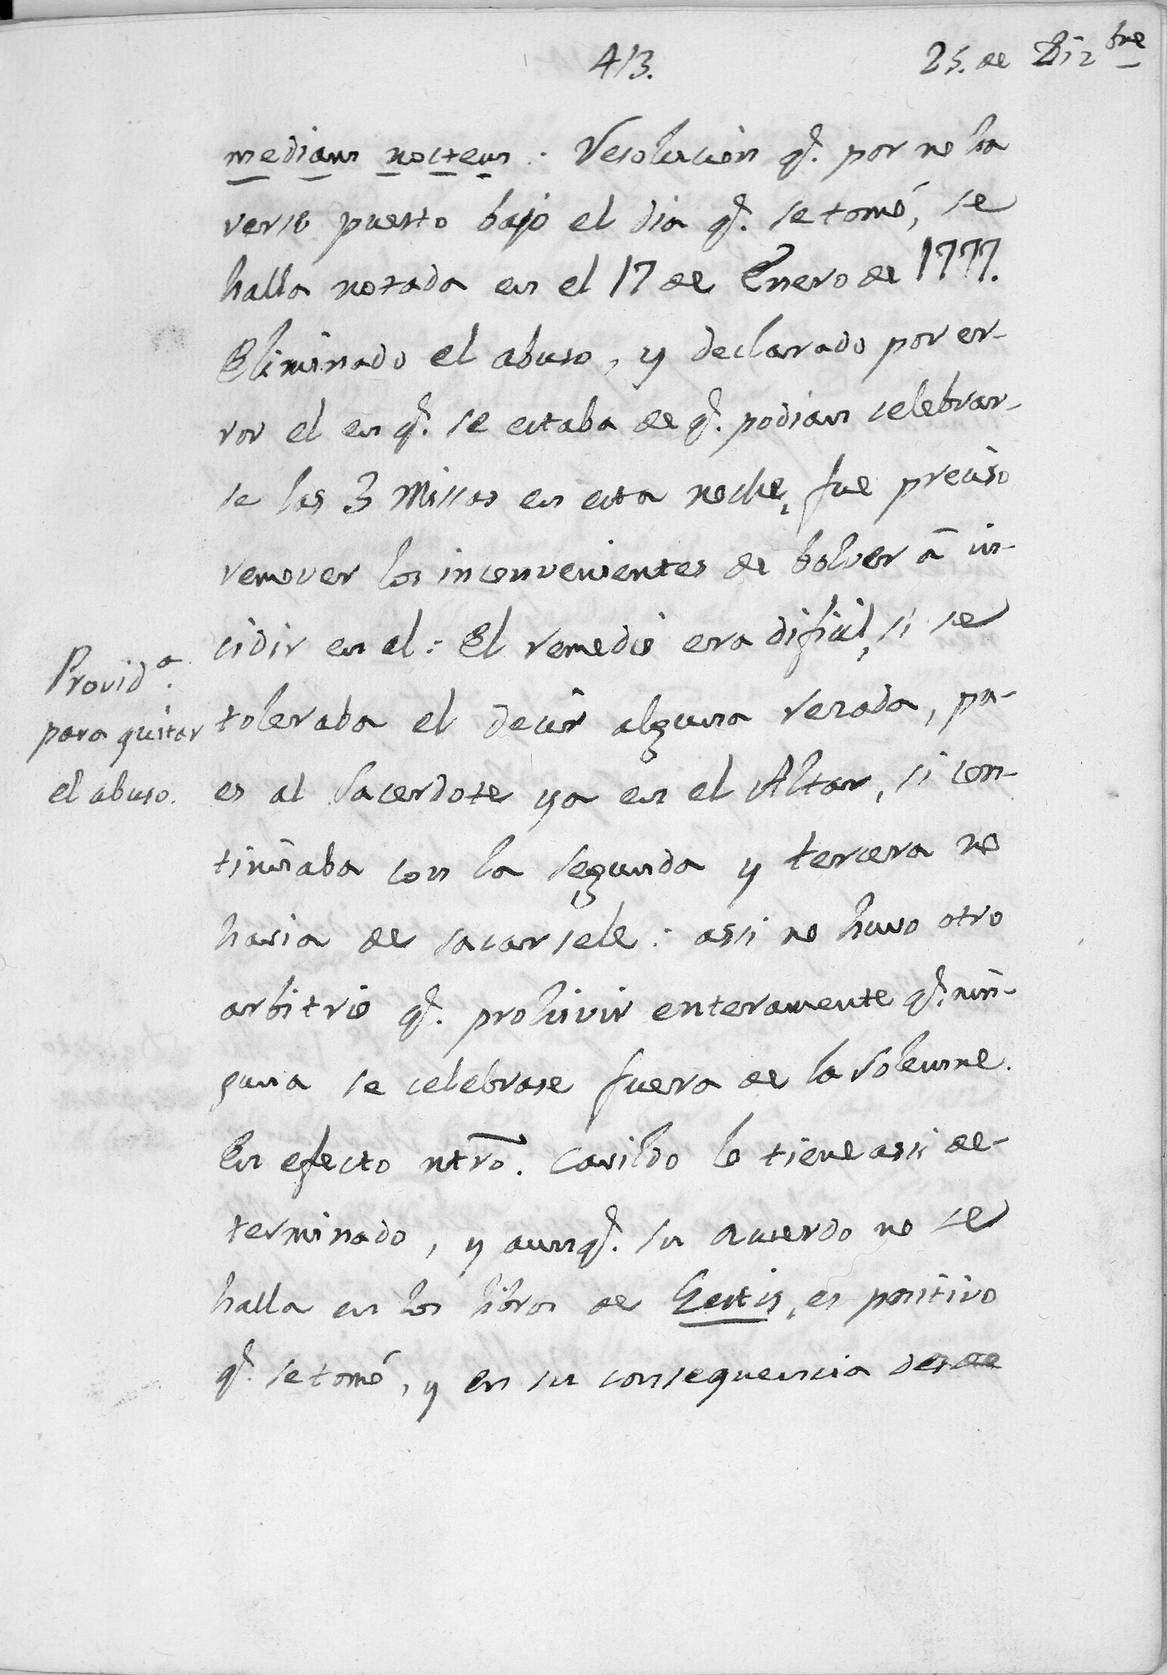 413.
25. de Diz bre
mediam noctem : Resolucion q.̃ por no ha
verse puesto bajo el dia q.̃ se tomó, se
halla notada en el 17 de Enero de 1777.
Eliminado el abuso, y declarado por er-
ror el en q.̃ se estaba de q.̃ podian celebrar-
se las 3 Missas en esta noche, fue preciso
remover los inconvenientes de bolver â in-
cidir en el : El remedio era dificil, si se
toleraba el decir alguna rezada, pu-
es al Sacerdote ya en el Altar, si con-
tinuaba con la segunda y tercera no
havia de sacarsele : assi no huvo otro
arbitrio q.̃ prohivir enteramente q.̃ nin-
guna se celebrase fuera de la Solemne.
En efecto ntrõ. Cavildo lo tiene assi de-
terminado, y aunq.̃ su acuerdo no se
halla en los libros de Gestis, es positivo
q.̃ se tomó, y en su consequencia desde
Provid.ª
para quitar
el abuso.